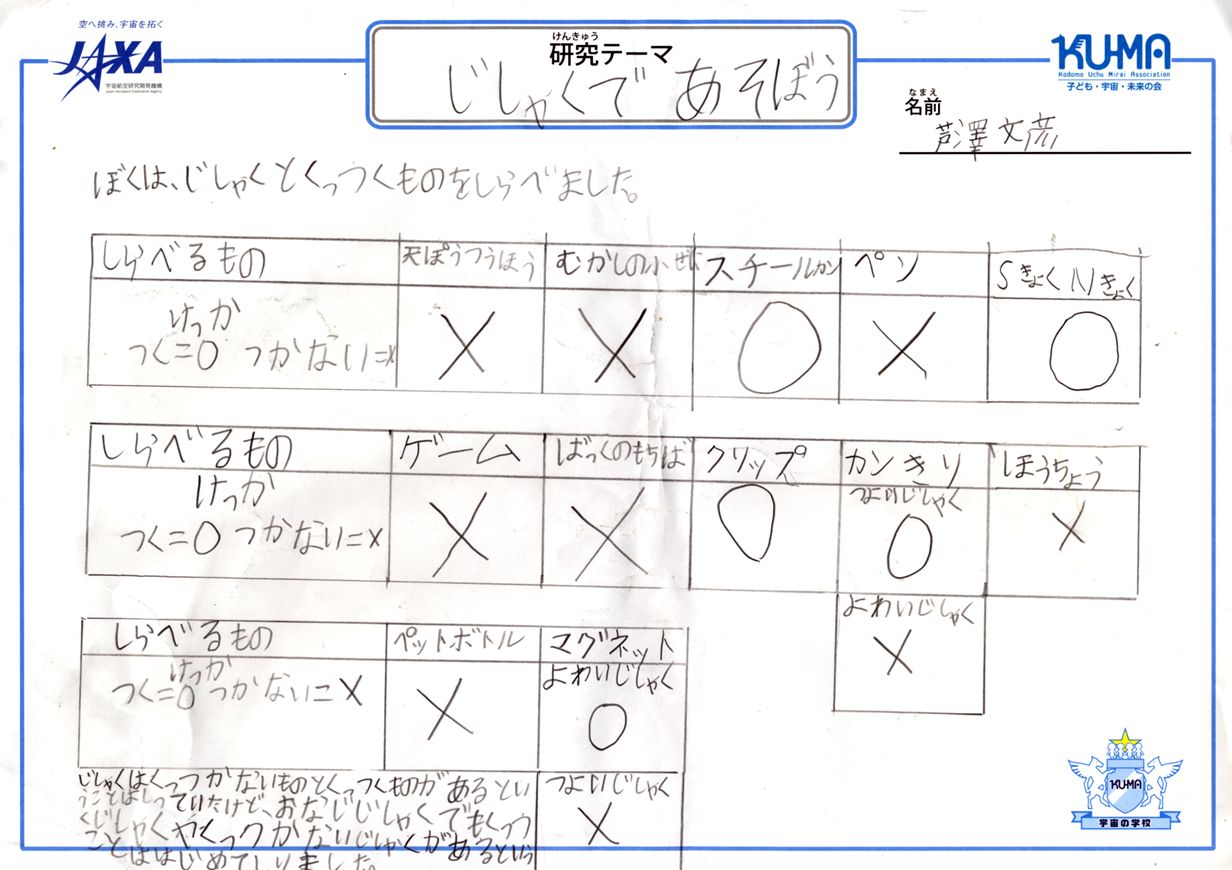 空へ挑み、宇宙を拓く
JAXA
宇宙航空研究開発機構
Japan Aerospace Exploration Agency
けんきゅう
研究テーマ
じしゃくで あそぼう
KU-MA
Kodomo Uchu Mirai Association
子ども・宇宙・未来の会
なまえ
名前
芦澤 文彦
ぼくは、じしゃくとくっつくものをしらべました。
しらべるもの 天ぽうつうほう むかしの小ぜに スチールカン ペン Sきょく Nきょく
けっか
つく=○ つかない=× × × ○ × ○
しらべるもの ゲーム ばっくのもちば クリップ カンきり ほうちょう
けっか つよいじしゃく
つく=○ つかない=× × × ○ ○ ×
よわいじしゃく
×
しらべるもの ペットボトル マグネット
けっか よわいじしゃく
つく=○ つかない=× × ○
つよいじしゃく
×
じしゃくはくっつかないものとくっつくものがあるとい
うことはしっていたけど、おなじじしゃくでもくっつ
くじしゃくやくっつかないじしゃくがあるという
ことははじめてしりました。
KU-MA
宇宙の学校